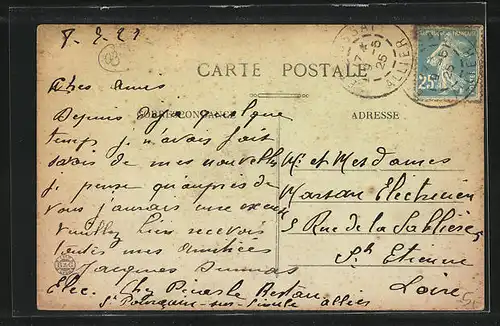 CARTE POSTALE
CORRESPONDANCE
ADRESSE
Chers amis
Depuis déjà quelque
temps je n'avais fait
savoir de mes nouvelles
je pense qu'auprès de
vous j'aurais une excuse
Veuillez bien recevoir
toutes mes amitiées
Jacques Dumas
Elec. Chez
St Pourçain-sur-Sioule Allier
Mr et Mesdames
Marsan Electricien
5 Rue de la Sablière
St Etienne
Loire
ALLIER
25
25c